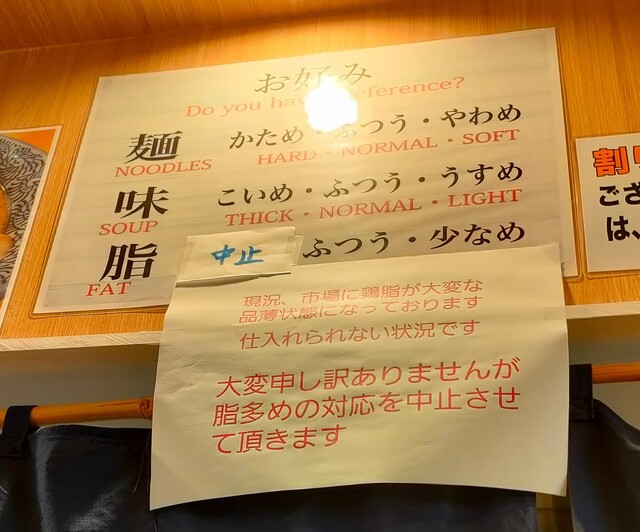 お好み
Do you have preference?
麺 かため・ふつう・やわめ
NOODLES HARD・NORMAL・SOFT
味 こいめ・ふつう・うすめ
SOUP THICK・NORMAL・LIGHT
脂 中止 ふつう・少なめ
FAT
現況、市場に鶏脂が大変な
品薄状態になっております
仕入れられない状況です
大変申し訳ありませんが
脂多めの対応を中止させ
て頂きます
割り
ござ
は、